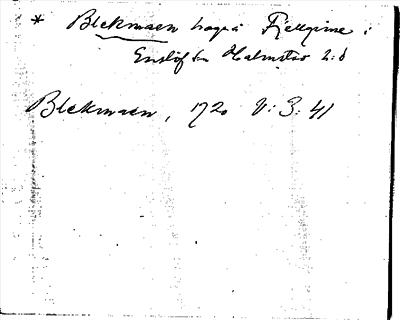 * Blekmaen hage i Fjellgine i
Enslöf sn Halmstad h:d
Blekmaen, 1720 V: 3: 41